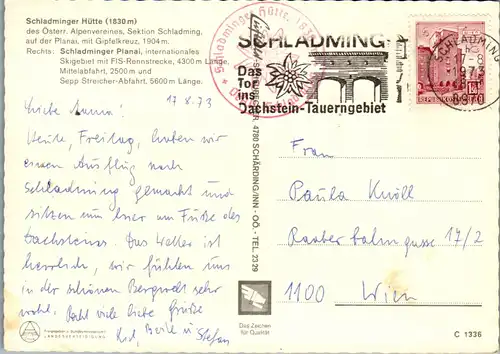 Schladminger Hütte (1830 m)
des Österr. Alpenvereines, Sektion Schladming,
auf der Planai, mit Gipfelkreuz, 1904 m.
Rechts: Schladminger Planai, internationales
Skigebiet mit FIS-Rennstrecke, 4300 m Länge,
Mittelabfahrt, 2500 m und
Sepp Streicher-Abfahrt, 5600 m Länge.
Schladminger Hütte
SCHLADMING
Das
Tor
ins
Dachstein-Tauerngebiet
SCHLADMING
17-8
1973
8970
REPUBLIK
17.8.73
Liebe Mama!
Heute, Freitag, haben wir
einen Ausflug nach
Schladming gemacht und
sitzen nun hier am Fuße des
Dachsteines. Das Wetter ist
herrlich, wir fühlen uns
in der schönen Bergwelt sehr
wohl. Recht viele liebe Grüße
und Stefan
4780 SCHÄRDING/INN - OÖ. - TEL. 23 29
Frau
Paula Knöll
Raaber Bahngasse 17/2
1100 Wien
LANDESVERTEIDIGUNG
Das Zeichen
für Qualität
C 1336